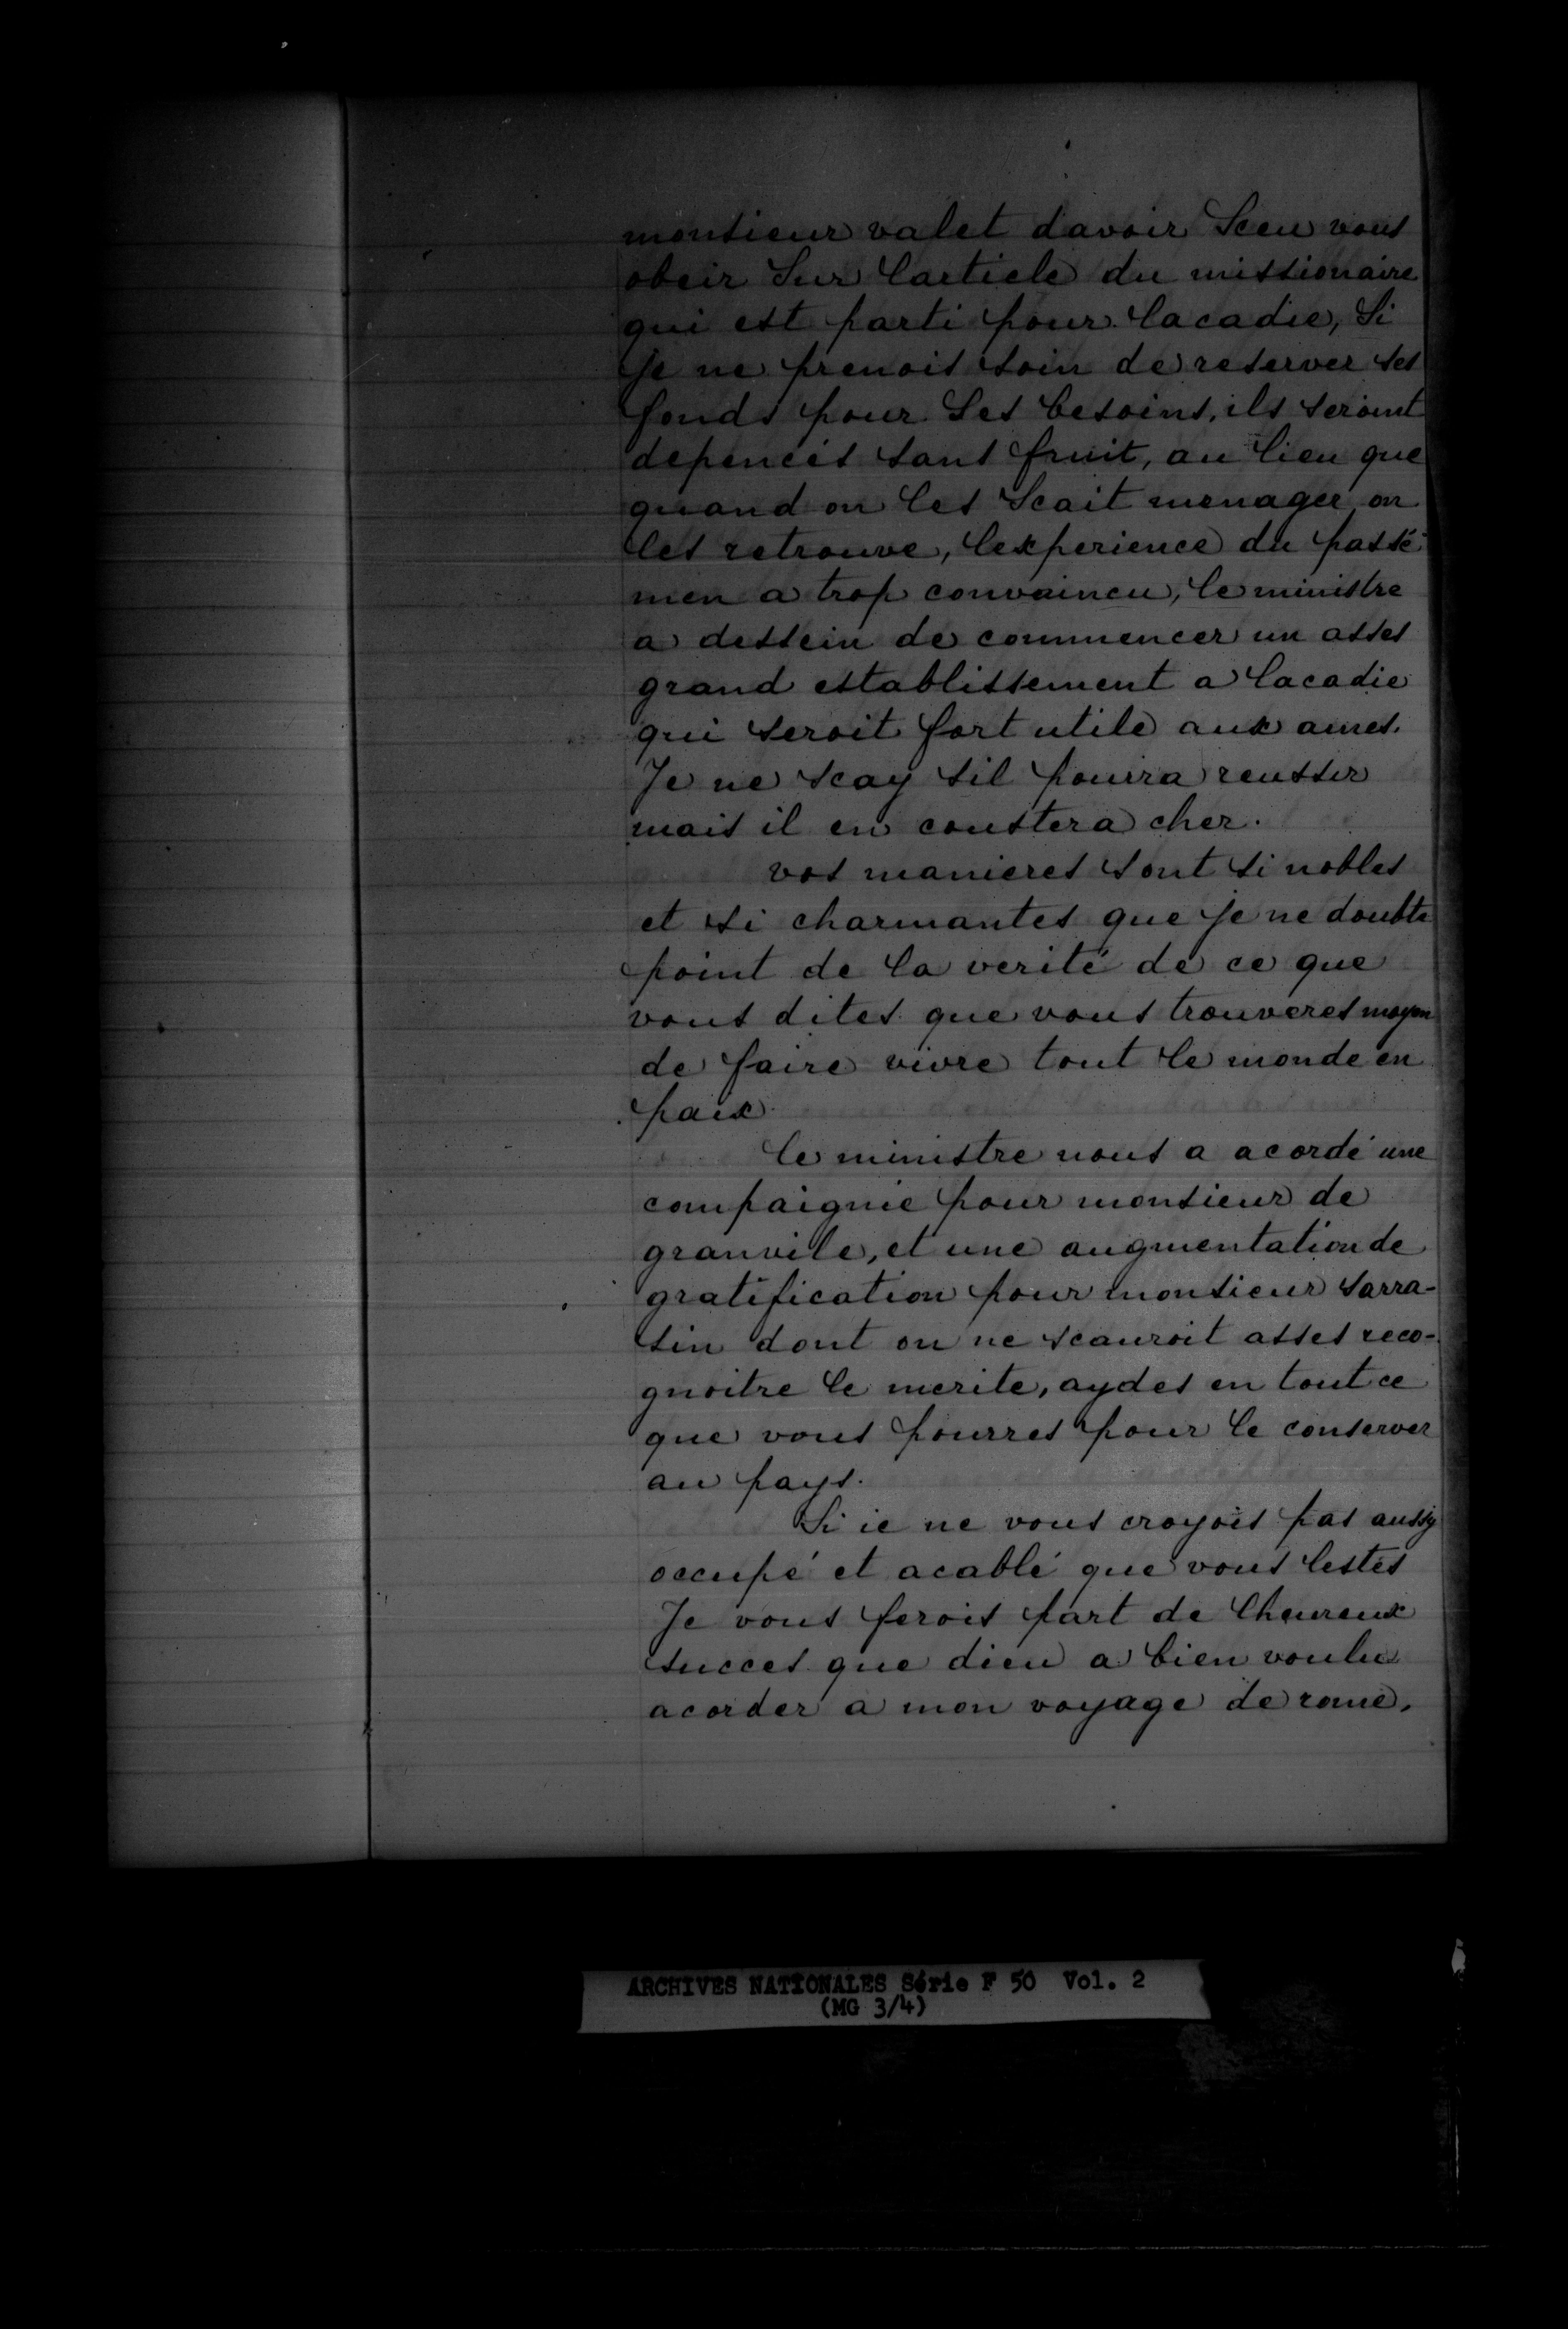 monsieur valet davoir Sceu vous
obeir Sur larticle du missionaire
qui est parti pour lacadie, Si
Je ne prenois soin de reserver ses
fonds pour Ses besoins, ils seroint
depencés sans fruit, au lieu que
quand on les Scait menager, on
les retrouve, lexperience du passé
men a trop convaincu, le ministre
a dessein de commencer un asses
grand establissement a lacadie
qui seroit fort utile aux ames.
Je ne scay sil pourra reussir
mais il en coustera cher.
vos manieres sont si nobles
et si charmantes que je ne doubte
point de la verité de ce que
vous dites que vous trouveres moyen
de faire vivre tout le monde en
paix.
le ministre nous a acordé une
compaignie pour monsieur de
granvile, et une augmentation de
gratification pour monsieur sarra-
sin dont on ne scauroit asses reco-
gnoitre le merite, aydes en tout ce
que vous pourres pour le conserver
au pays.
Si ie ne vous croyois pas aussy
occupé et acablé que vous lestes
Je vous ferois part de lheureux
succes que dieu a bien voulu
acorder a mon voyage de rome.
ARCHIVES NATIONALES Série F 50 Vol. 2
(MG 3/4)